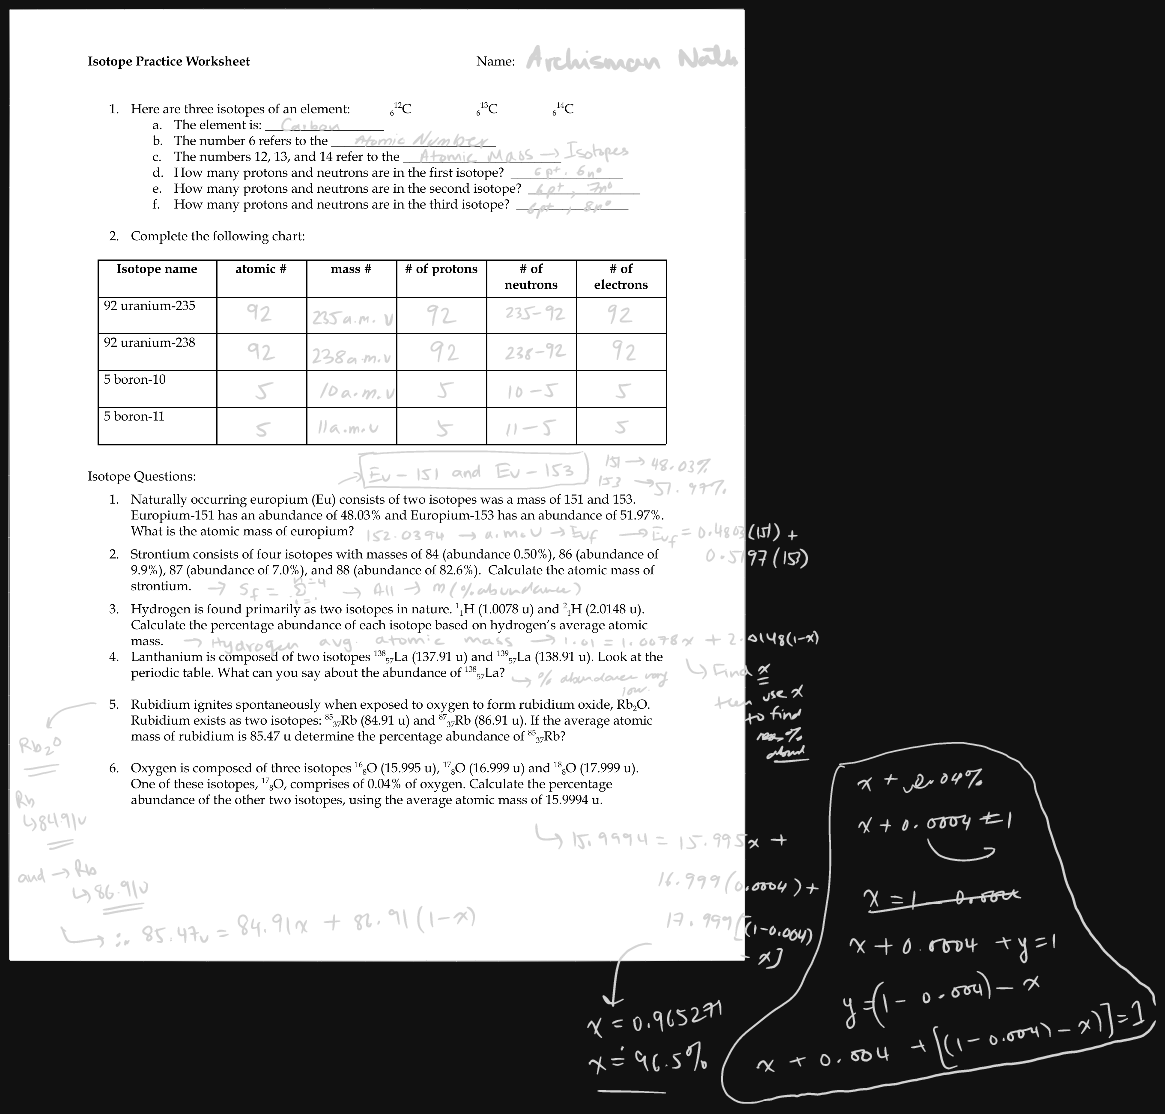 Isotope Practice Worksheet Name: Archisman Nath
1. Here are three isotopes of an element: ¹²₆C ¹³₆C ¹⁴₆C
a. The element is: Carbon
b. The number 6 refers to the Atomic Number
c. The numbers 12, 13, and 14 refer to the Atomic Mass → Isotopes
d. How many protons and neutrons are in the first isotope? 6p+, 6n°
e. How many protons and neutrons are in the second isotope? 6p+, 7n°
f. How many protons and neutrons are in the third isotope? 6p+, 8n°
2. Complete the following chart:
Isotope name atomic # mass # # of protons # of neutrons # of electrons
92 uranium-235 92 235 a.m.u 92 235-92 92
92 uranium-238 92 238 a.m.u 92 238-92 92
5 boron-10 5 10 a.m.u 5 10-5 5
5 boron-11 5 11 a.m.u 5 11-5 5
→ Eu-151 and Eu-153 151 → 48.03%
153 → 51.97%
Isotope Questions:
1. Naturally occurring europium (Eu) consists of two isotopes was a mass of 151 and 153.
Europium-151 has an abundance of 48.03% and Europium-153 has an abundance of 51.97%.
What is the atomic mass of europium? 152.0394 → a.m.u → Euf → Euf = 0.4803(151) +
0.5197(153)
2. Strontium consists of four isotopes with masses of 84 (abundance 0.50%), 86 (abundance of
9.9%), 87 (abundance of 7.0%), and 88 (abundance of 82.6%). Calculate the atomic mass of
strontium. → Sf = Σ → All → m(% abundance)
3. Hydrogen is found primarily as two isotopes in nature. ¹₁H (1.0078 u) and ²₁H (2.0148 u).
Calculate the percentage abundance of each isotope based on hydrogen's average atomic
mass. → Hydrogen avg. atomic mass → 1.01 = 1.0078x + 2.0148(1-x)
↳ Find x
then use x
to find
%
abund
4. Lanthanium is composed of two isotopes ¹³⁸₅₇La (137.91 u) and ¹³⁹₅₇La (138.91 u). Look at the
periodic table. What can you say about the abundance of ¹³⁸₅₇La? ↳ % abundance very
low.
5. Rubidium ignites spontaneously when exposed to oxygen to form rubidium oxide, Rb₂O.
Rubidium exists as two isotopes: ⁸⁵₃₇Rb (84.91 u) and ⁸⁷₃₇Rb (86.91 u). If the average atomic
mass of rubidium is 85.47 u determine the percentage abundance of ⁸⁵₃₇Rb?
Rb₂O
Rb
↳ 84.91u
and → Rb
↳ 86.91u
↳ ∴ 85.47u = 84.91x + 86.91(1-x)
6. Oxygen is composed of three isotopes ¹⁶₈O (15.995 u), ¹⁷₈O (16.999 u) and ¹⁸₈O (17.999 u).
One of these isotopes, ¹⁷₈O, comprises of 0.04% of oxygen. Calculate the percentage
abundance of the other two isotopes, using the average atomic mass of 15.9994 u.
↳ 15.9994 = 15.995x +
16.999(0.0004) +
17.999[(1-0.004)
- x]
x = 0.965271
x = 96.5%
x + 0.04%
x + 0.0004 = 1
x = 1 - 0.0004
x + 0.0004 + y = 1
y = (1 - 0.004) - x
x + 0.004 + [(1-0.004)-x)] = 1